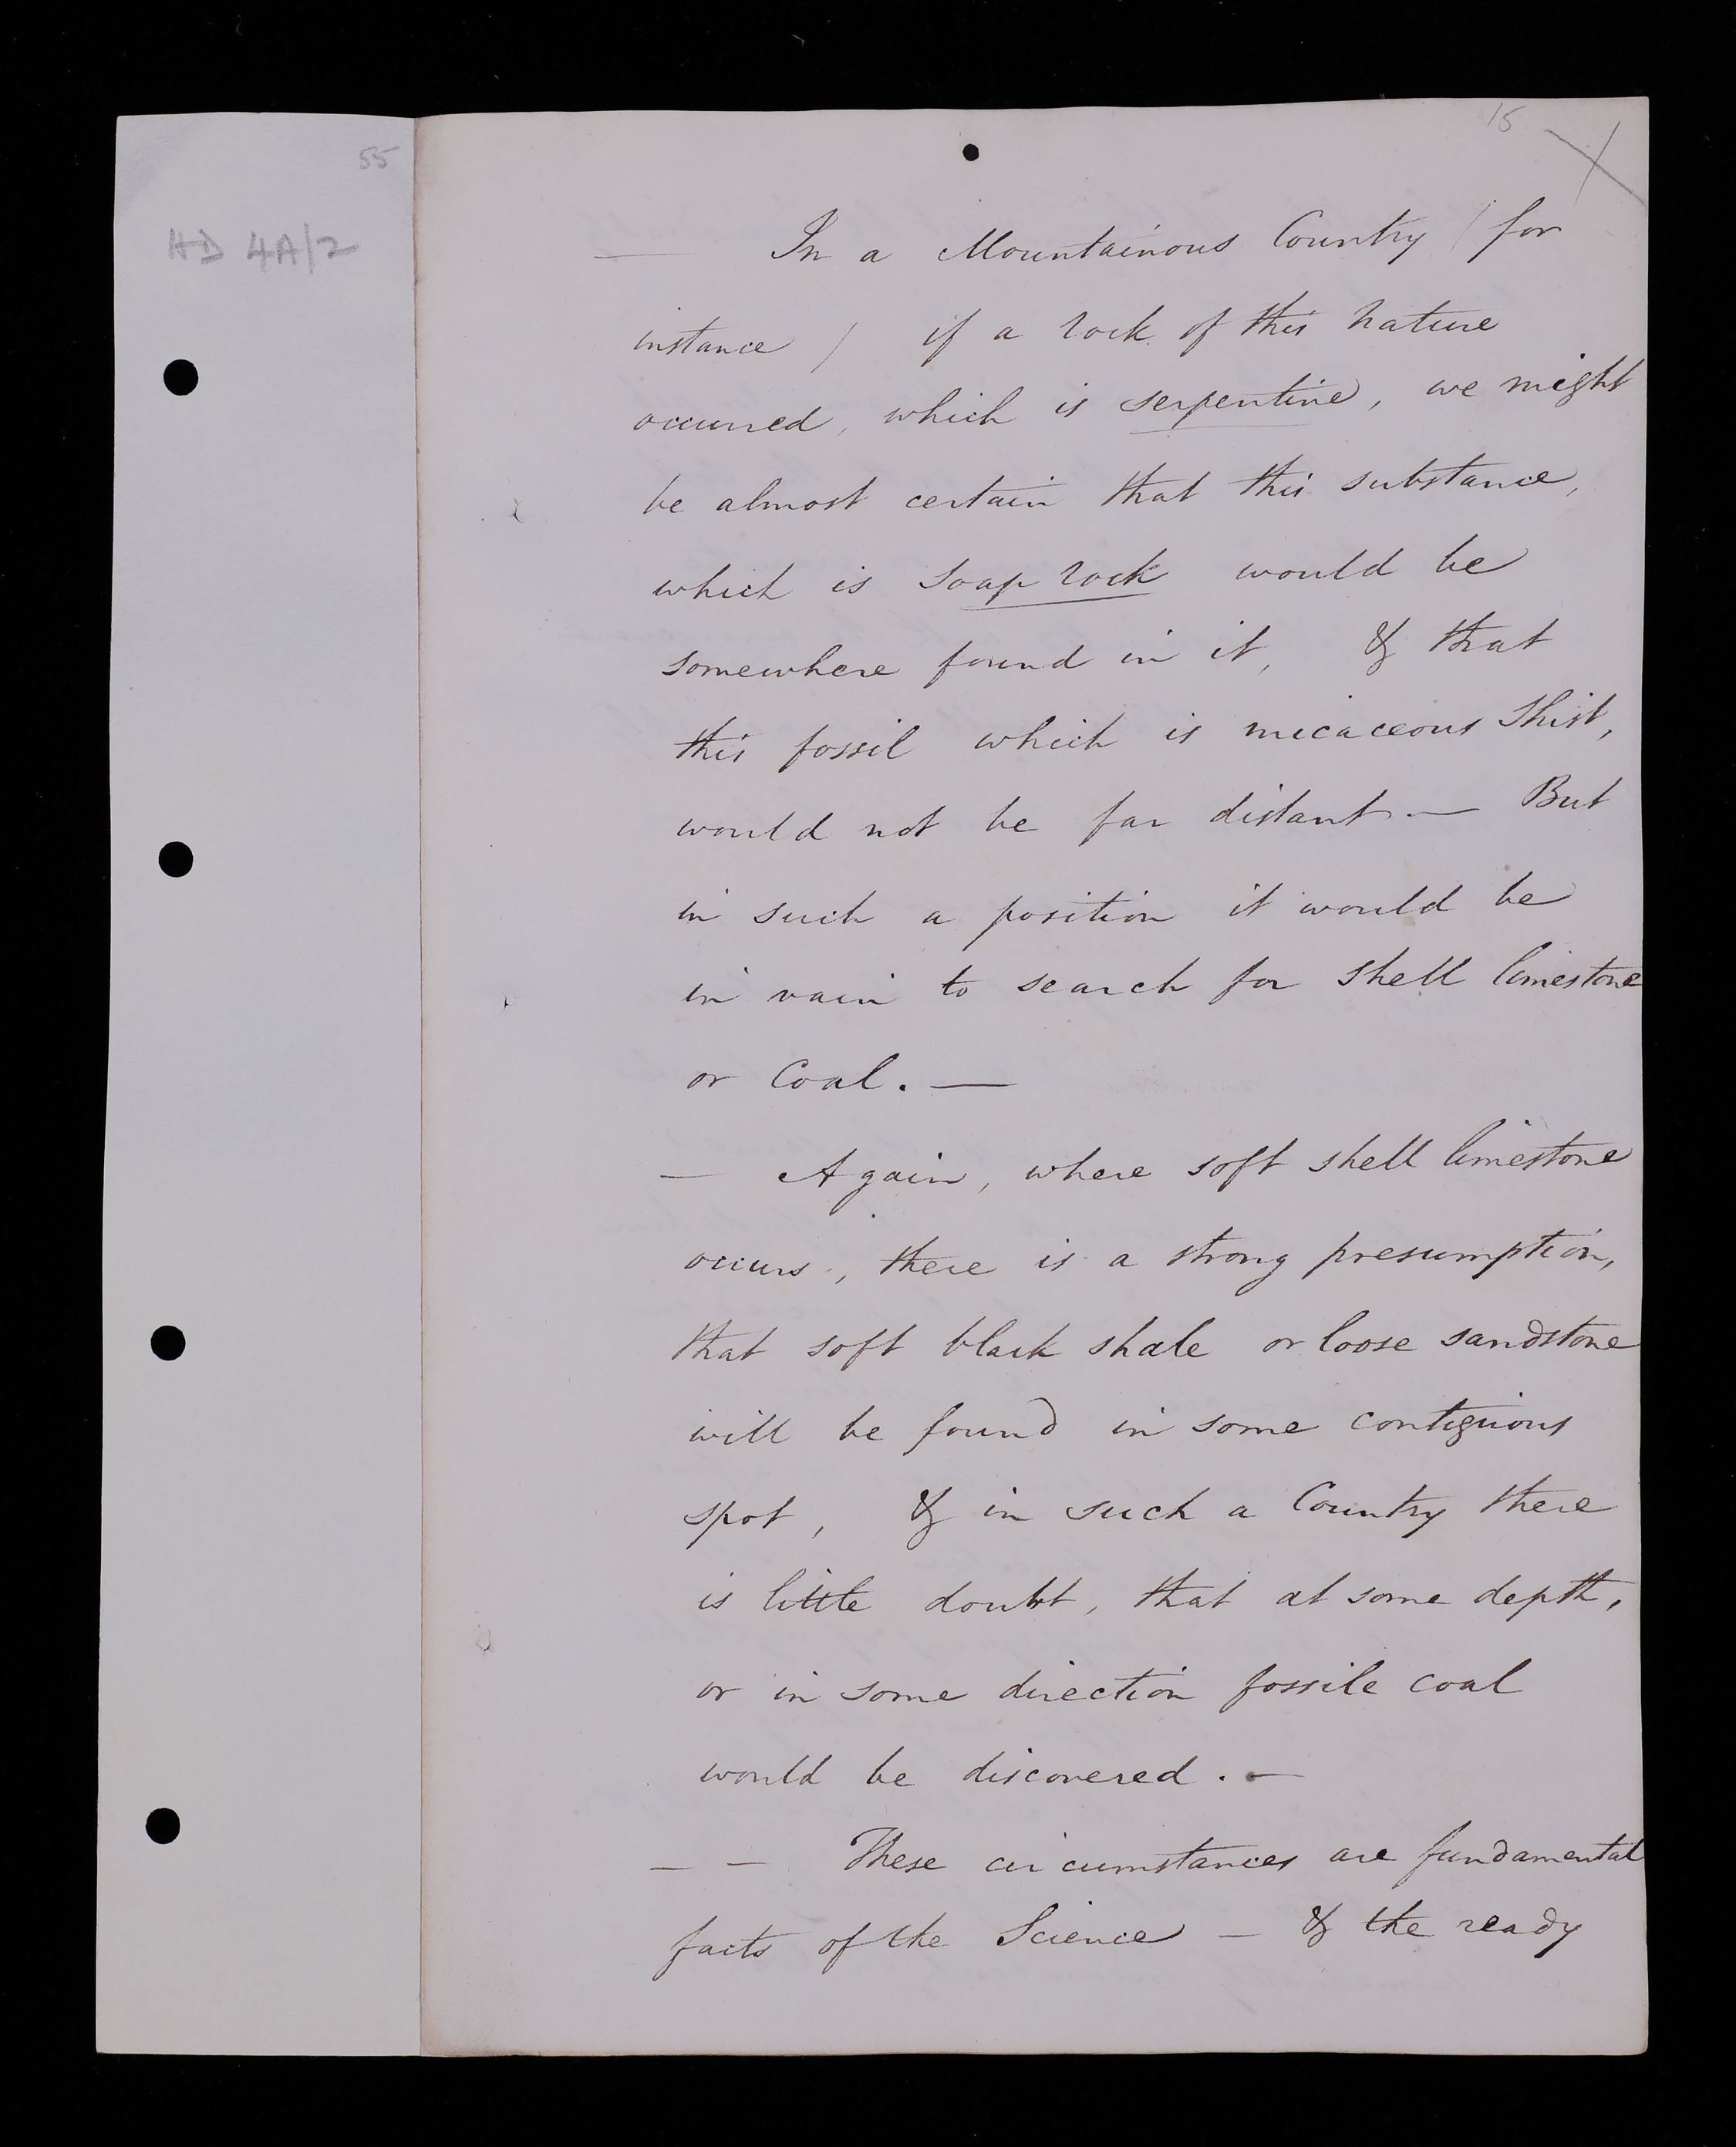 55
HD 4A/2
15
— In a Mountainous Country / for
instance / if a rock of this nature
occurred, which is serpentine, we might
be almost certain that this substance,
which is soap rock would be
somewhere found in it, & that
this fossil which is micaceous Shist,
would not be far distant. — But
in such a position it would be
in vain to search for shell limestone
or Coal. —
— Again, where soft shell limestone
occurs, there is a strong presumption,
that soft black shale or loose sandstone
will be found in some contiguous
spot, & in such a Country there
is little doubt, that at some depth,
or in some direction fossile coal
would be discovered. —
— — These circumstances are fundamental
facts of the Science — & the ready